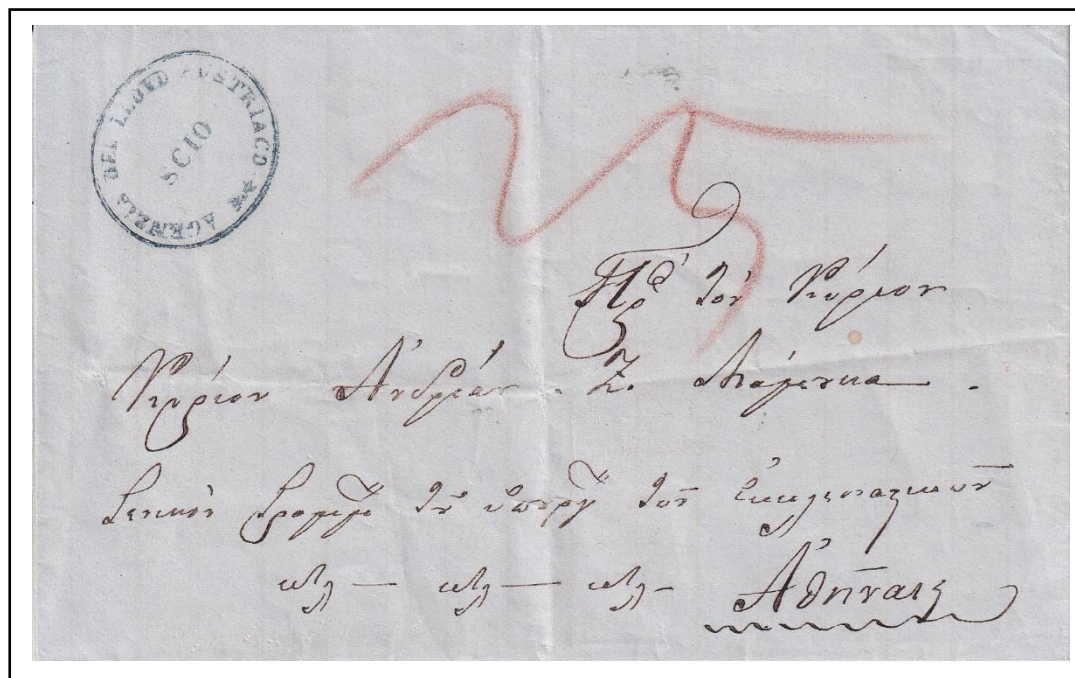 AGENZIA DEL LLOYD AUSTRIACO
SCIO
25
Πρς τὸν Κύριον
Κύριον Ἀνδρέαν Ζ. Μάμουκα
Γενικὸν Γραμμ τοῦ ὑπουργ τῶν Ἐκκλησιαστικῶν
κτλ — κτλ — κτλ — Ἀθήνας